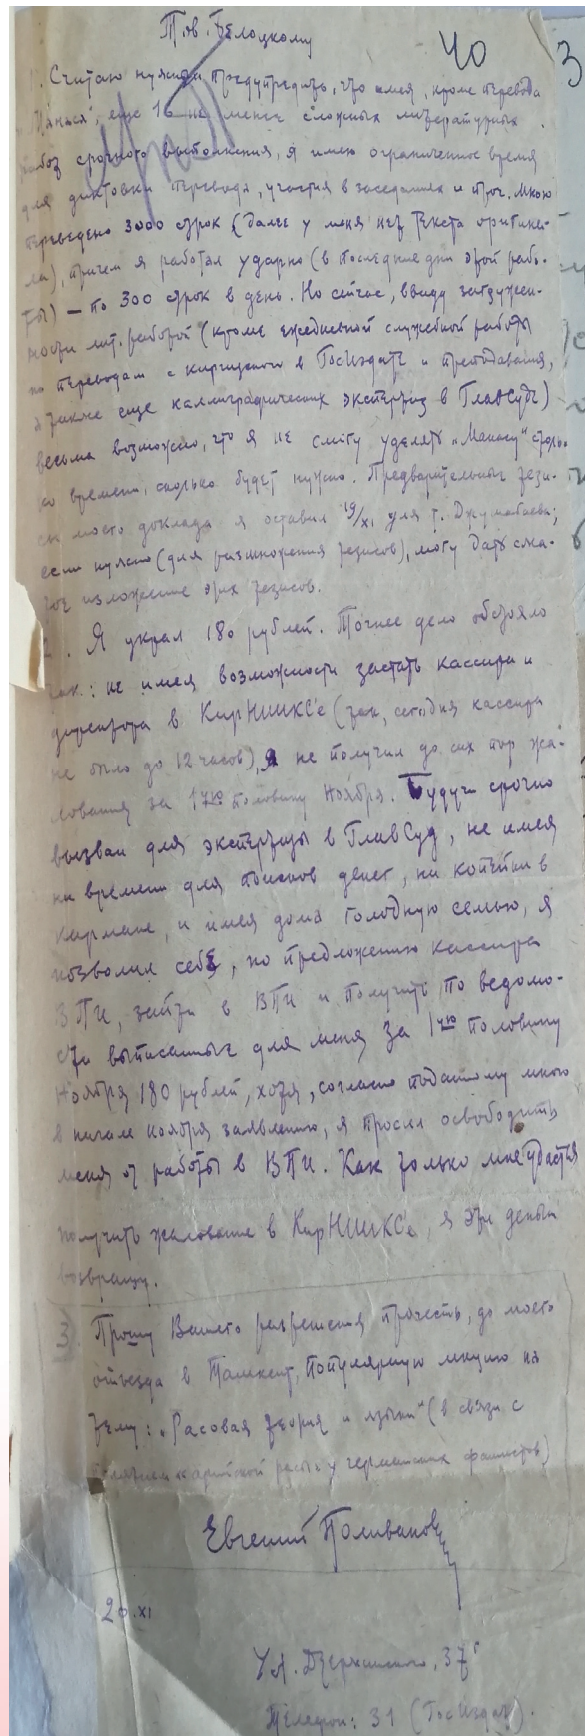 Тов. Белоцкому
40
3
1. Считаю нужным предупредить, что имея, кроме перевода
"Манаса", еще 16 не менее сложных литературных
работ срочного выполнения, я имею ограниченное время
для диктовки перевода, участия в заседаниях и проч. Мною
переведено 3000 строк (далее у меня нет текста оригина-
ла), причем я работал ударно (в последние дни этой рабо-
ты) — по 300 строк в день. Но сейчас, ввиду загружен-
ности лит. работой (кроме ежедневной служебной работы
по переводам с киргизского в Госиздате и преподавания,
а также еще каллиграфических экспертиз в ГлавСуде)
весьма возможно, что я не смогу уделять „Манасу" столь-
ко времени, сколько будет нужно. Предварительные тези-
сы моего доклада я оставил 19/XI для т. Джумабаева;
если нужно (для размножения тезисов), могу дать сжа-
тое изложение этих тезисов.
2. Я украл 180 рублей. Точнее дело обстояло
так: не имея возможности застать кассира и
директора в КирНИИКС'е (так, сегодня кассира
не было до 12 часов), я не получил до сих пор жа-
лования за 1ую половину ноября. Будучи срочно
вызван для экспертизы в ГлавСуд, не имея
ни времени для поисков денег, ни копейки в
кармане, и имея дома голодную семью, я
позволил себе, по предложению кассира
ВПИ, зайти в ВПИ и получить по ведомо-
сти выписанные для меня за 1ую половину
ноября 180 рублей, хотя, согласно поданному мною
в начале ноября заявлению, я просил освободить
меня от работы в ВПИ. Как только мне удастся
получить жалование в КирНИИКС'е, я эти деньги
возвращу.
3) Прошу Вашего разрешения прочесть, до моего
отъезда в Ташкент, популярную лекцию на
тему: „Расовая теория и языки" (в связи с
арийской расы у германских фашистов)
Евгений Поливанов
20.XI
Ул. Дзержинского, 37
Телефон: 31 (Госиздат).